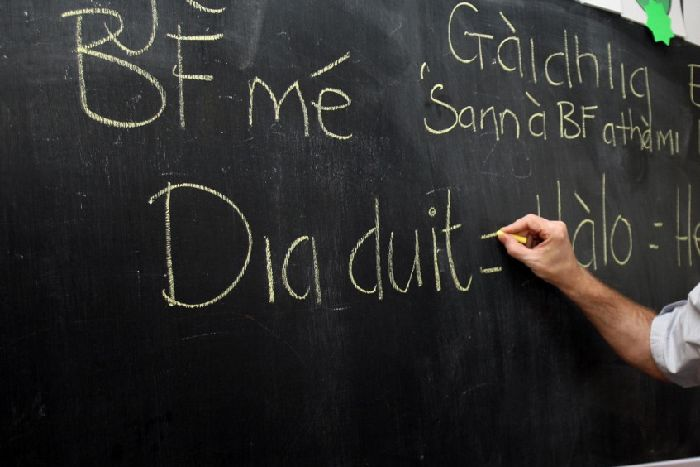 BF mé
Gàidhlig
'S ann à BF a tha mi
Dia duit = Hàlo =